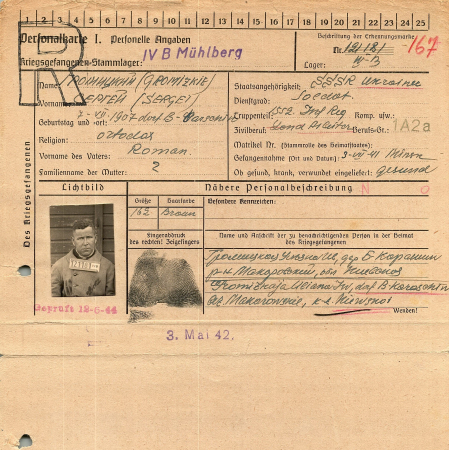 1 2 3 4 5 6 7 8 9 10 11 12 13 14 15 16 17 18 19 20 21 22 23 24 25
Personalkarte I. Personelle Angaben
Beschriftung der Erkennungsmarke
Kriegsgefangenen-Stammlager: IV B Mühlberg
Nr. 121181 167
Lager: IV-B
Des Kriegsgefangenen
Name: (GROMIZKIE)
Staatsangehörigkeit: SSSR Ukrainer
Vorname: СЕРГЕЙ (SERGEI)
Dienstgrad: Soldat
Geburtstag und -ort: 7-VII-1907 dorf B-
Truppenteil: 552 Inf Reg Komp. usw.:
Religion: ortodox
Zivilberuf: Land Arbeiter Berufs-Gr.: 1A2a
Vorname des Vaters: Roman
Matrikel Nr. (Stammrolle des Heimatstaates):
Familienname der Mutter: ?
Gefangennahme (Ort und Datum): 3-VII-41 Minsk
Ob gesund, krank, verwundet eingeliefert: gesund
Lichtbild
Nähere Personalbeschreibung N O
Größe Haarfarbe
Besondere Kennzeichen:
162 Braun
Fingerabdruck
des rechten! Zeigefingers
Name und Anschrift der zu benachrichtigenden Person in der Heimat
des Kriegsgefangenen
р-н Макаровский, обл.
Gromizkaja Uliana Iw, dorf B Karaschin
Makarowskie, Kiewskoi
Wenden!
Geprüft 18-6-44
3. Mai 42.